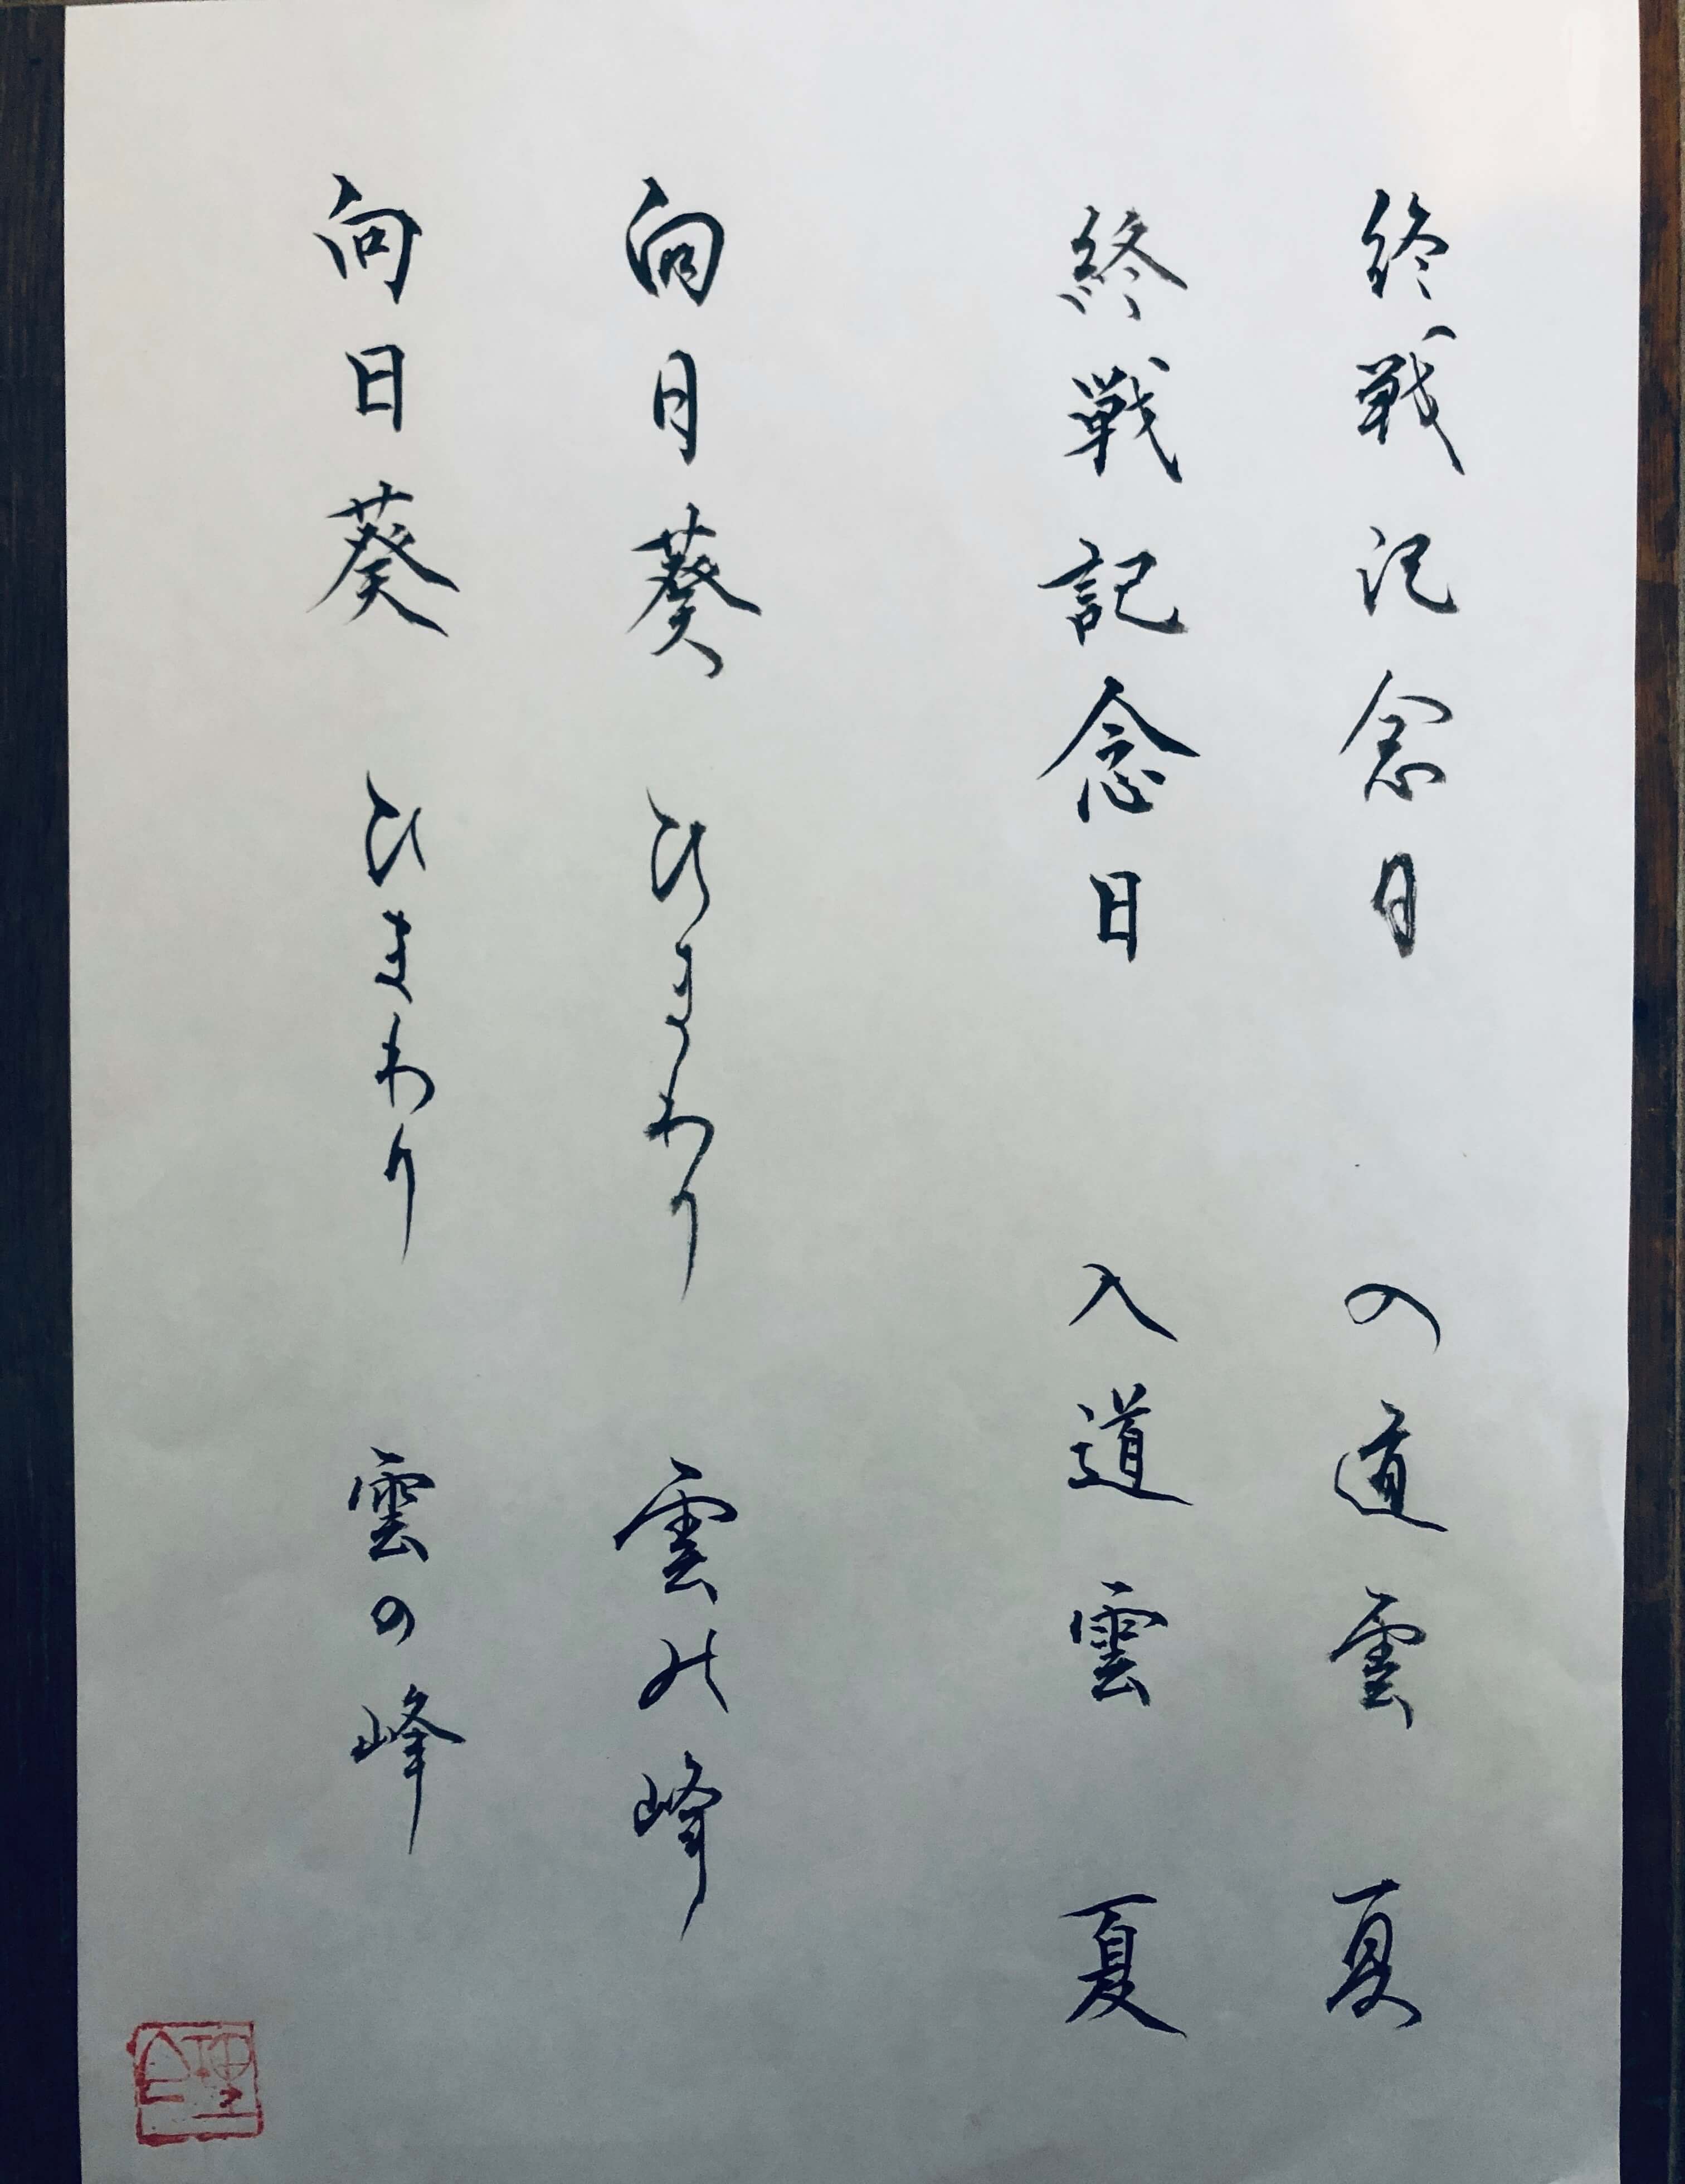 終戦記念日 入道雲 夏
終戦記念日 入道雲 夏
向日葵 ひまわり 雲の峰
向日葵 ひまわり 雲の峰